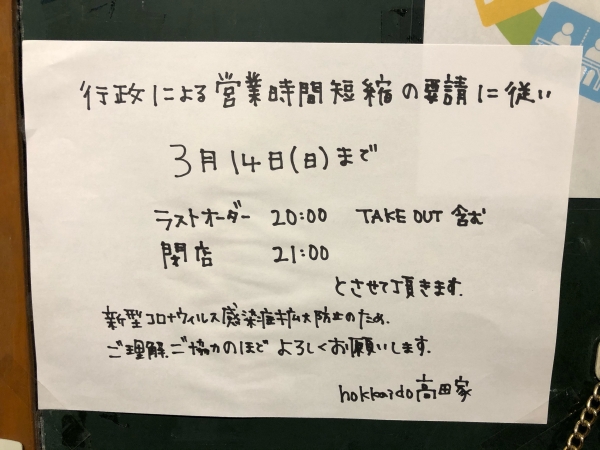 行政による営業時間短縮の要請に従い
3月14日(日)まで
ラストオーダー 20:00 TAKE OUT 含む
閉店 21:00
とさせて頂きます.
新型コロナウィルス感染症拡大防止のため.
ご理解.ご協力のほど よろしくお願いします.
hokkaido高田家